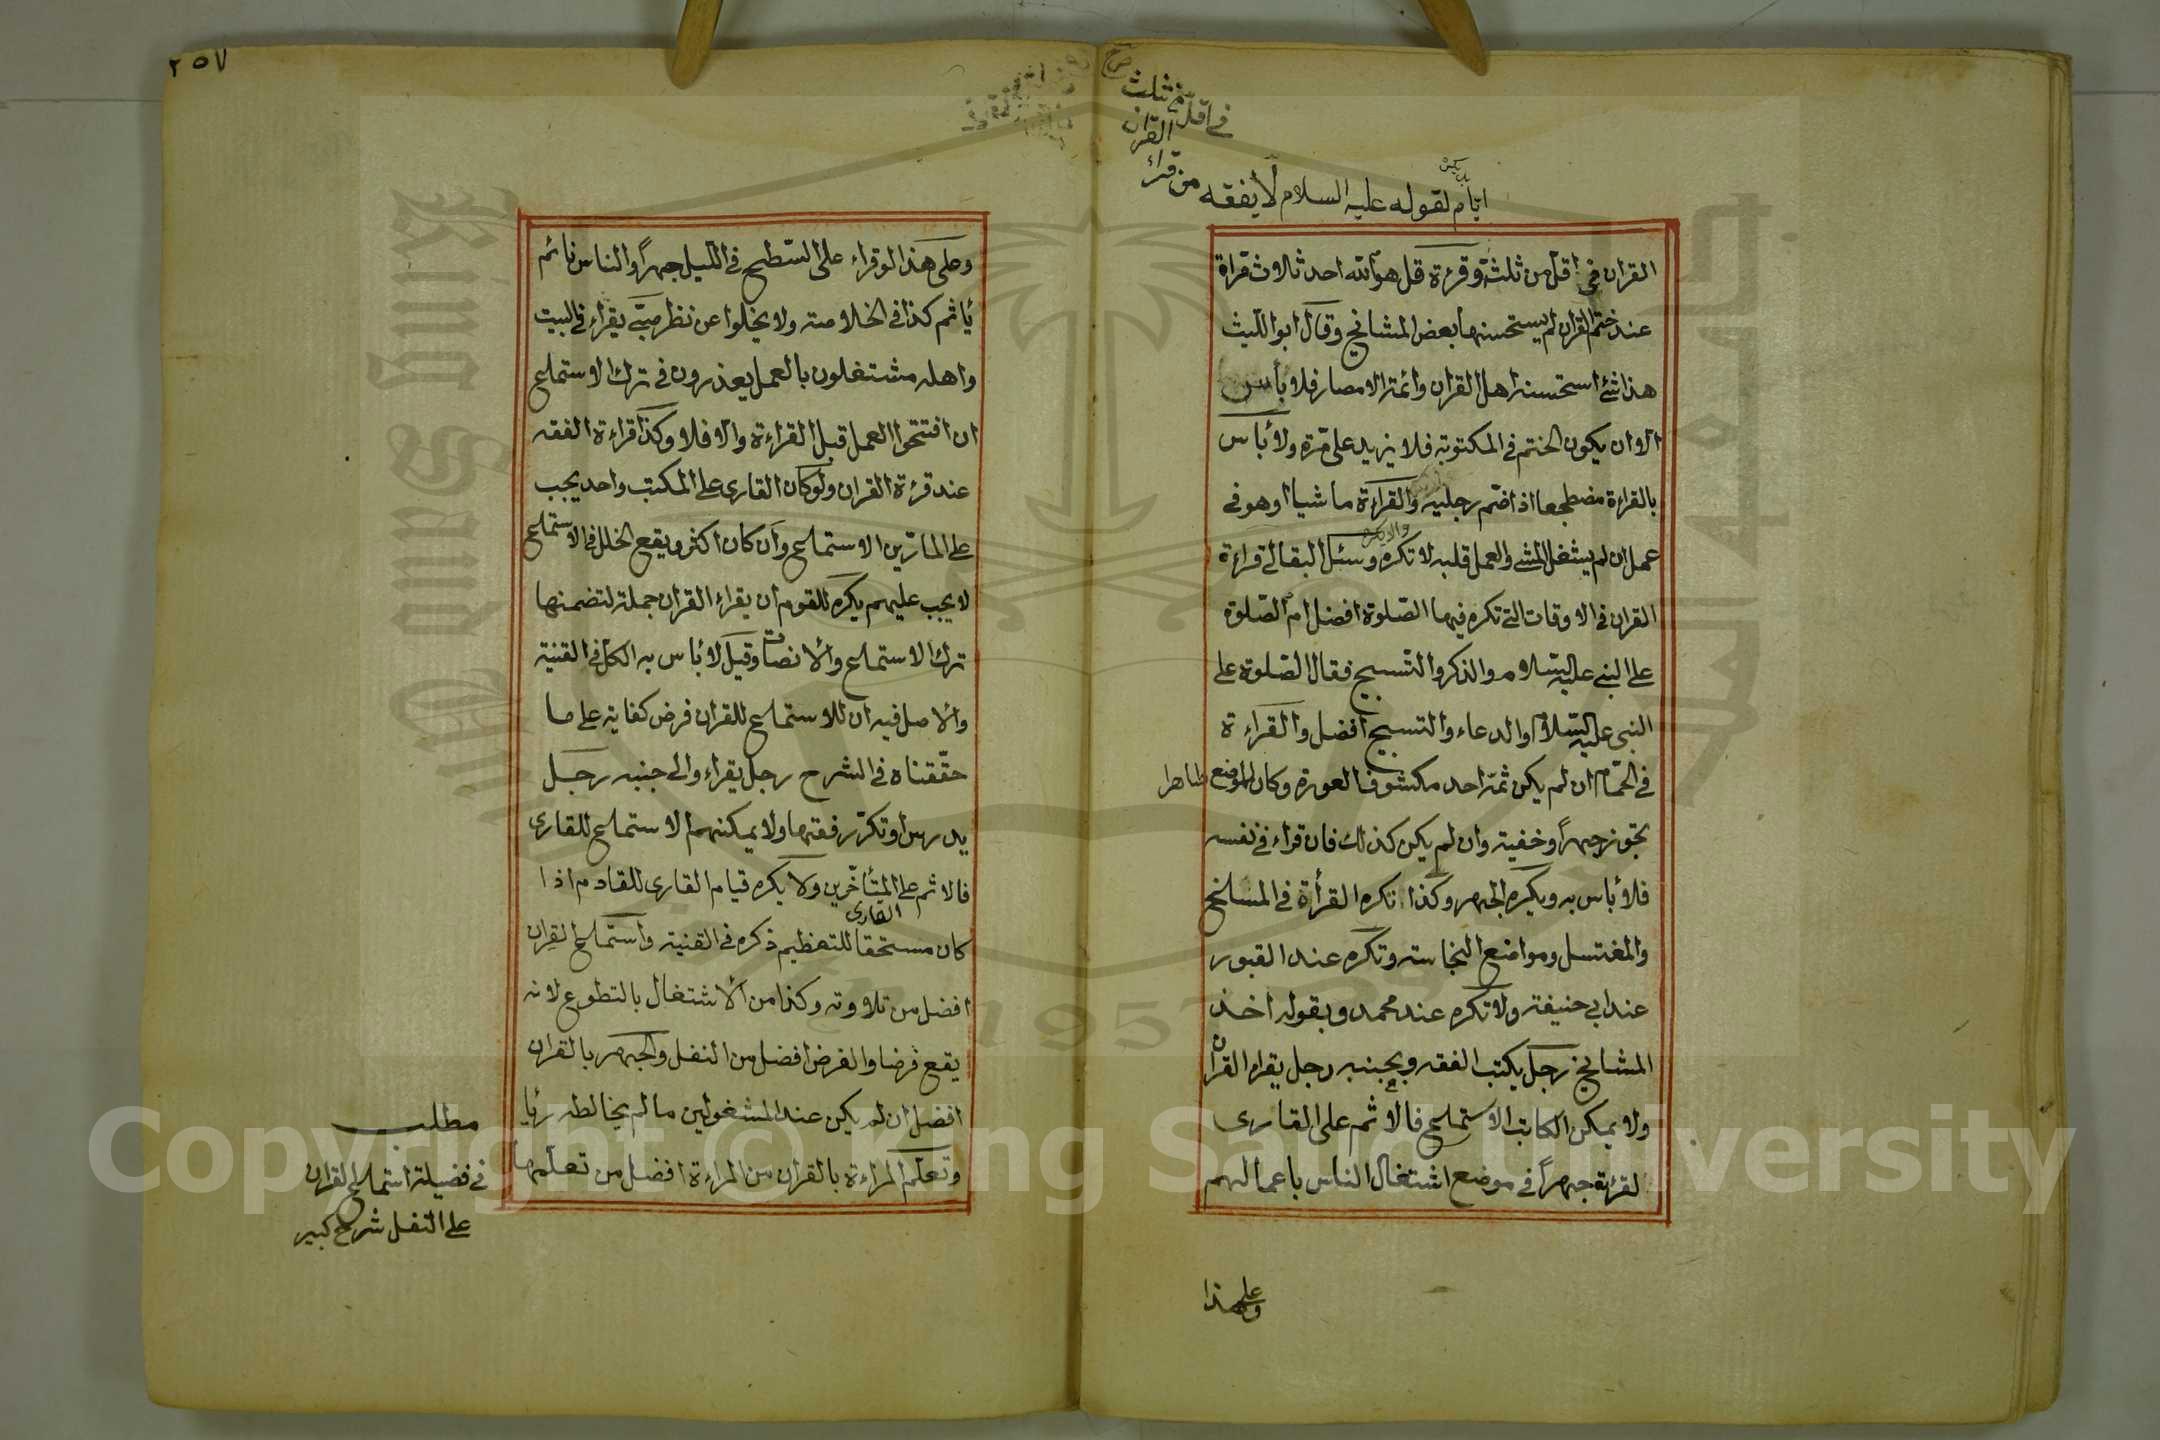 في اقل من ثلث
القران
من قراء
ايام لقوله عليه السلام لا يفقه
القران في اقل من ثلثة وقرءة قل هو الله احد ثلاث قراة
عند ختم القران لم يستحسنها بعض المشانخ وقال ابو الليث
هذا شئ استحسنه اهل القران وائمة الامصار فلا بأس
الا ان يكون الختم في المكتوبة فلا يزيد على مرة ولا بأس
بالقراءة مضطجعا اذا ضم رجليه والقراءة ماشيا او هو في
عمل ان لم يشغل المشي والعمل قلبه لا تكره وسئل البقالي قراءة
القران في الاوقات التي تكره فيها الصلوة افضل ام الصلوة
على النبي عليه السلام والذكر والتسبيح فقال الصلوة على
النبي عليه السلام والدعاء والتسبيح افضل والقراءة
في الحمام ان لم يكن ثمة احد مكشوف العورة وكان الموضع طاهرا
تجوز جهرا وخفية وان لم يكن كذلك فان قراء في نفسه
فلا بأس به ويكره الجهر وكذا تكره القرأة في المسلخ
والمغتسل ومواضع النجاسة وتكره عند القبور
عند ابي حنيفة ولا تكره عند محمد وبقوله اخذ
المشانخ رجل يكتب الفقه وبجنبه رجل يقراء القران
ولا يمكن الكاتب الاستماع فالاثم على القارى
لقرءته جهرا في موضع اشتغال الناس باعمالهم
وعلى هذا
٢٥٧
وعلى هذا لو قراء على السطح في الليل جهرا والناس نائم
يأثم كذا في الخلاصة ولا يخلوا عن نظر صبى يقراء في البيت
واهله مشتغلون بالعمل يعذرون في ترك الاستماع
ان افتتحوا العمل قبل القراءة والا فلا وكذا قراءة الفقه
عند قرءة القران ولو كان القارى على المكتب واحد يجب
على المارين الاستماع وان كان اكثر ويقع الخلل في الاستماع
لا يجب عليهم يكره للقوم ان يقراء القران جملة لتضمنها
ترك الاستماع والانصات وقيل لا بأس به الكل في القنية
والاصل فيه ان الاستماع للقران فرض كفاية على ما
حققناه في الشرح رجل يقراء والى جنبه رجل
يدرس او تكرر فقها ولا يمكنهم الاستماع للقارى
فالاثم على المتأخرين ولا يكره قيام القارى للقادم اذا
القارى
كان مستحقا للتعظيم ذكره في القنية واستماع القران
افضل من تلاوته وكذا من الاشتغال بالتطوع لانه
يقع فرضا والفرض افضل من النفل والجهر بالقران
افضل ان لم يكن عند المشغولين ما لم يخالطه رئا
وتعلم المراءة بالقران من المراءة افضل من تعلمها
مطلب
في فضيلة استماع القران
على النفل شرح كبير
Copyright © King Saud University
King Saud
1957